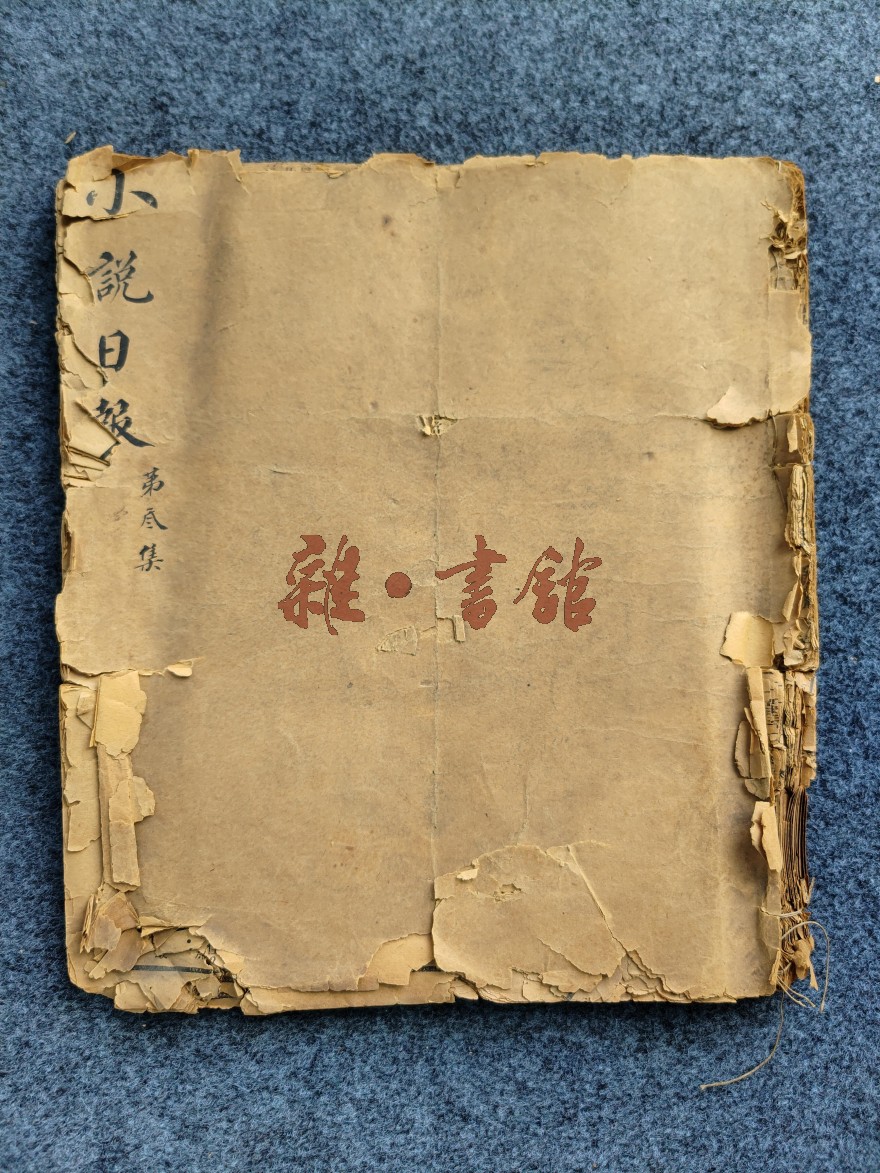 小説日報
第叁集
雜·書館